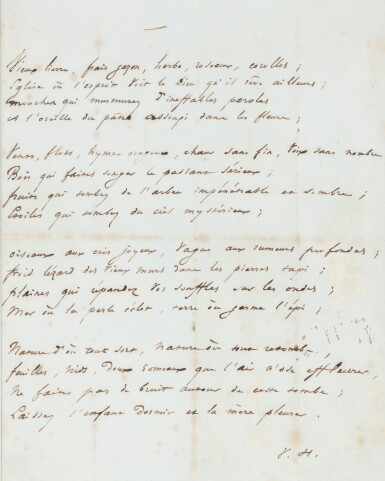 Vieux lierre, frais gazon, herbe, roseaux, corolles ;
Eglise où l'esprit voit le Dieu qu'il rêve ailleurs ;
Mouches qui murmurez d'ineffables paroles
à l'oreille du pâtre assoupi dans les fleurs ;

Vents, flots, hymne orageux, chœur sans fin, voix sans nombre
Bois qui faites songer le passant sérieux ;
fruits qui tombez de l'arbre impénétrable et sombre ;
Étoiles qui tombez du ciel mystérieux ;

oiseaux aux cris joyeux, vague aux rumeurs profondes ;
froid lézard des vieux murs dans les pierres tapi ;
plaines qui répandez vos souffles sur les ondes ;
Mer où la perle éclot, terre où germe l'épi ;

Nature d'où tout sort, nature où tout retombe,
feuilles, nids, doux rameaux que l'air n'ose effleurer,
Ne faites pas de bruit autour de cette tombe ;
Laissez l'enfant dormir et la mère pleurer.

V. H.